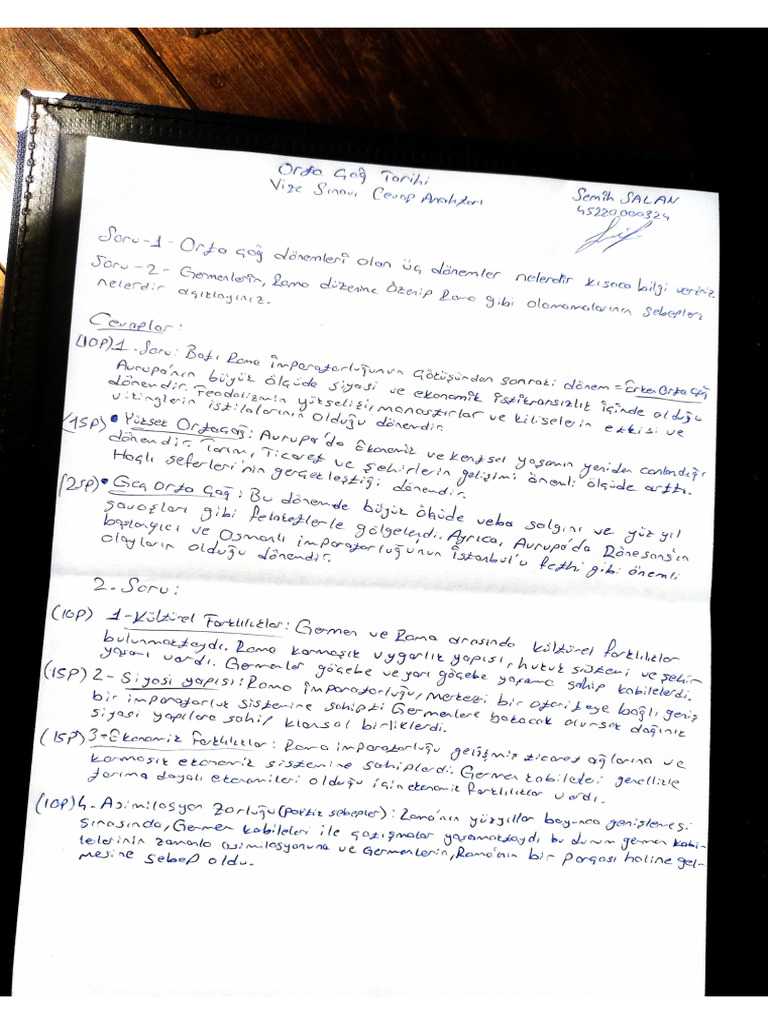 Orta Çağ Tarihi
Vize Sınavı Cevap Anahtarı
Semih SALAN
45220000324
Soru-1- Orta çağ dönemleri olan üç dönemler nelerdir kısaca bilgi veriniz.
Soru-2- Germenlerin, Roma düzenine özenip Roma gibi olamamalarının sebepleri
nelerdir açıklayınız.
Cevaplar:
(10P) 1. Soru: Batı Roma İmparatorluğunun Çöküşünden sonraki dönem = Erken Orta Çağ
Avrupa'nın büyük ölçüde siyasi ve ekonomik istikransızlık içinde olduğu
dönendir. Feodalizmin yükselişi, manastırlar ve kiliselerin etkisi ve
vikinglerin istilalarının olduğu dönendir.
(15P) • Yüksek Ortaçağ: Avrupa'da Ekonomik ve kentsel yaşamın yeniden canlandığı
dönendir. Tarım, Ticaret ve şehirlerin gelişimi önemli ölçüde arttı.
Haçlı seferleri'nin gerçekleştiği dönendir.
(25P) • Geç Orta Çağ: Bu dönemde büyük ölçüde veba salgını ve yüz yıl
savaşları gibi felaketlerle gölgelendi. Ayrıca, Avrupa'da Rönesans'ın
başlangıcı ve Osmanlı imparatorluğunun İstanbul'u fethi gibi önemli
olayların olduğu dönendir.
2. Soru:
(10P) 1-Kültürel Farklılıklar: Germen ve Roma arasında kültürel farklılıklar
bulunmaktaydı. Roma karmaşık uygarlık yapısı, hukuk sistemi ve şehir
yaşamı vardı. Germenler göçebe ve yarı göçebe yaşama sahip kabilelerdi.
(15P) 2- Siyasi yapısı: Roma İmparatorluğu, Merkezi bir otoriteye bağlı geniş
bir imparatorluk sistemine sahipti Germenlere bakacak olursak dağınık
siyasi yapılara sahip klansal birliklerdi.
(15P) 3-Ekonomik Farklılıklar: Roma imparatorluğu gelişmiş ticaret ağlarına ve
karmaşık ekonomik sistemine sahiplerdi. Germen kabileleri genellikle
tarıma dayalı ekonomileri olduğu için ekonomik farklılıklar vardı.
(10P) 4- Asimilasyon Zorluğu : Roma'nın yüzyıllar boyunca genişlemesi
sırasında, Germen kabileleri ile çatışmalar yaşamaktaydı bu durum germen kabi-
lelerinin zamanla asimilasyonuna ve Germenlerin, Roma'nın bir parçası haline gel-
mesine sebep oldu.